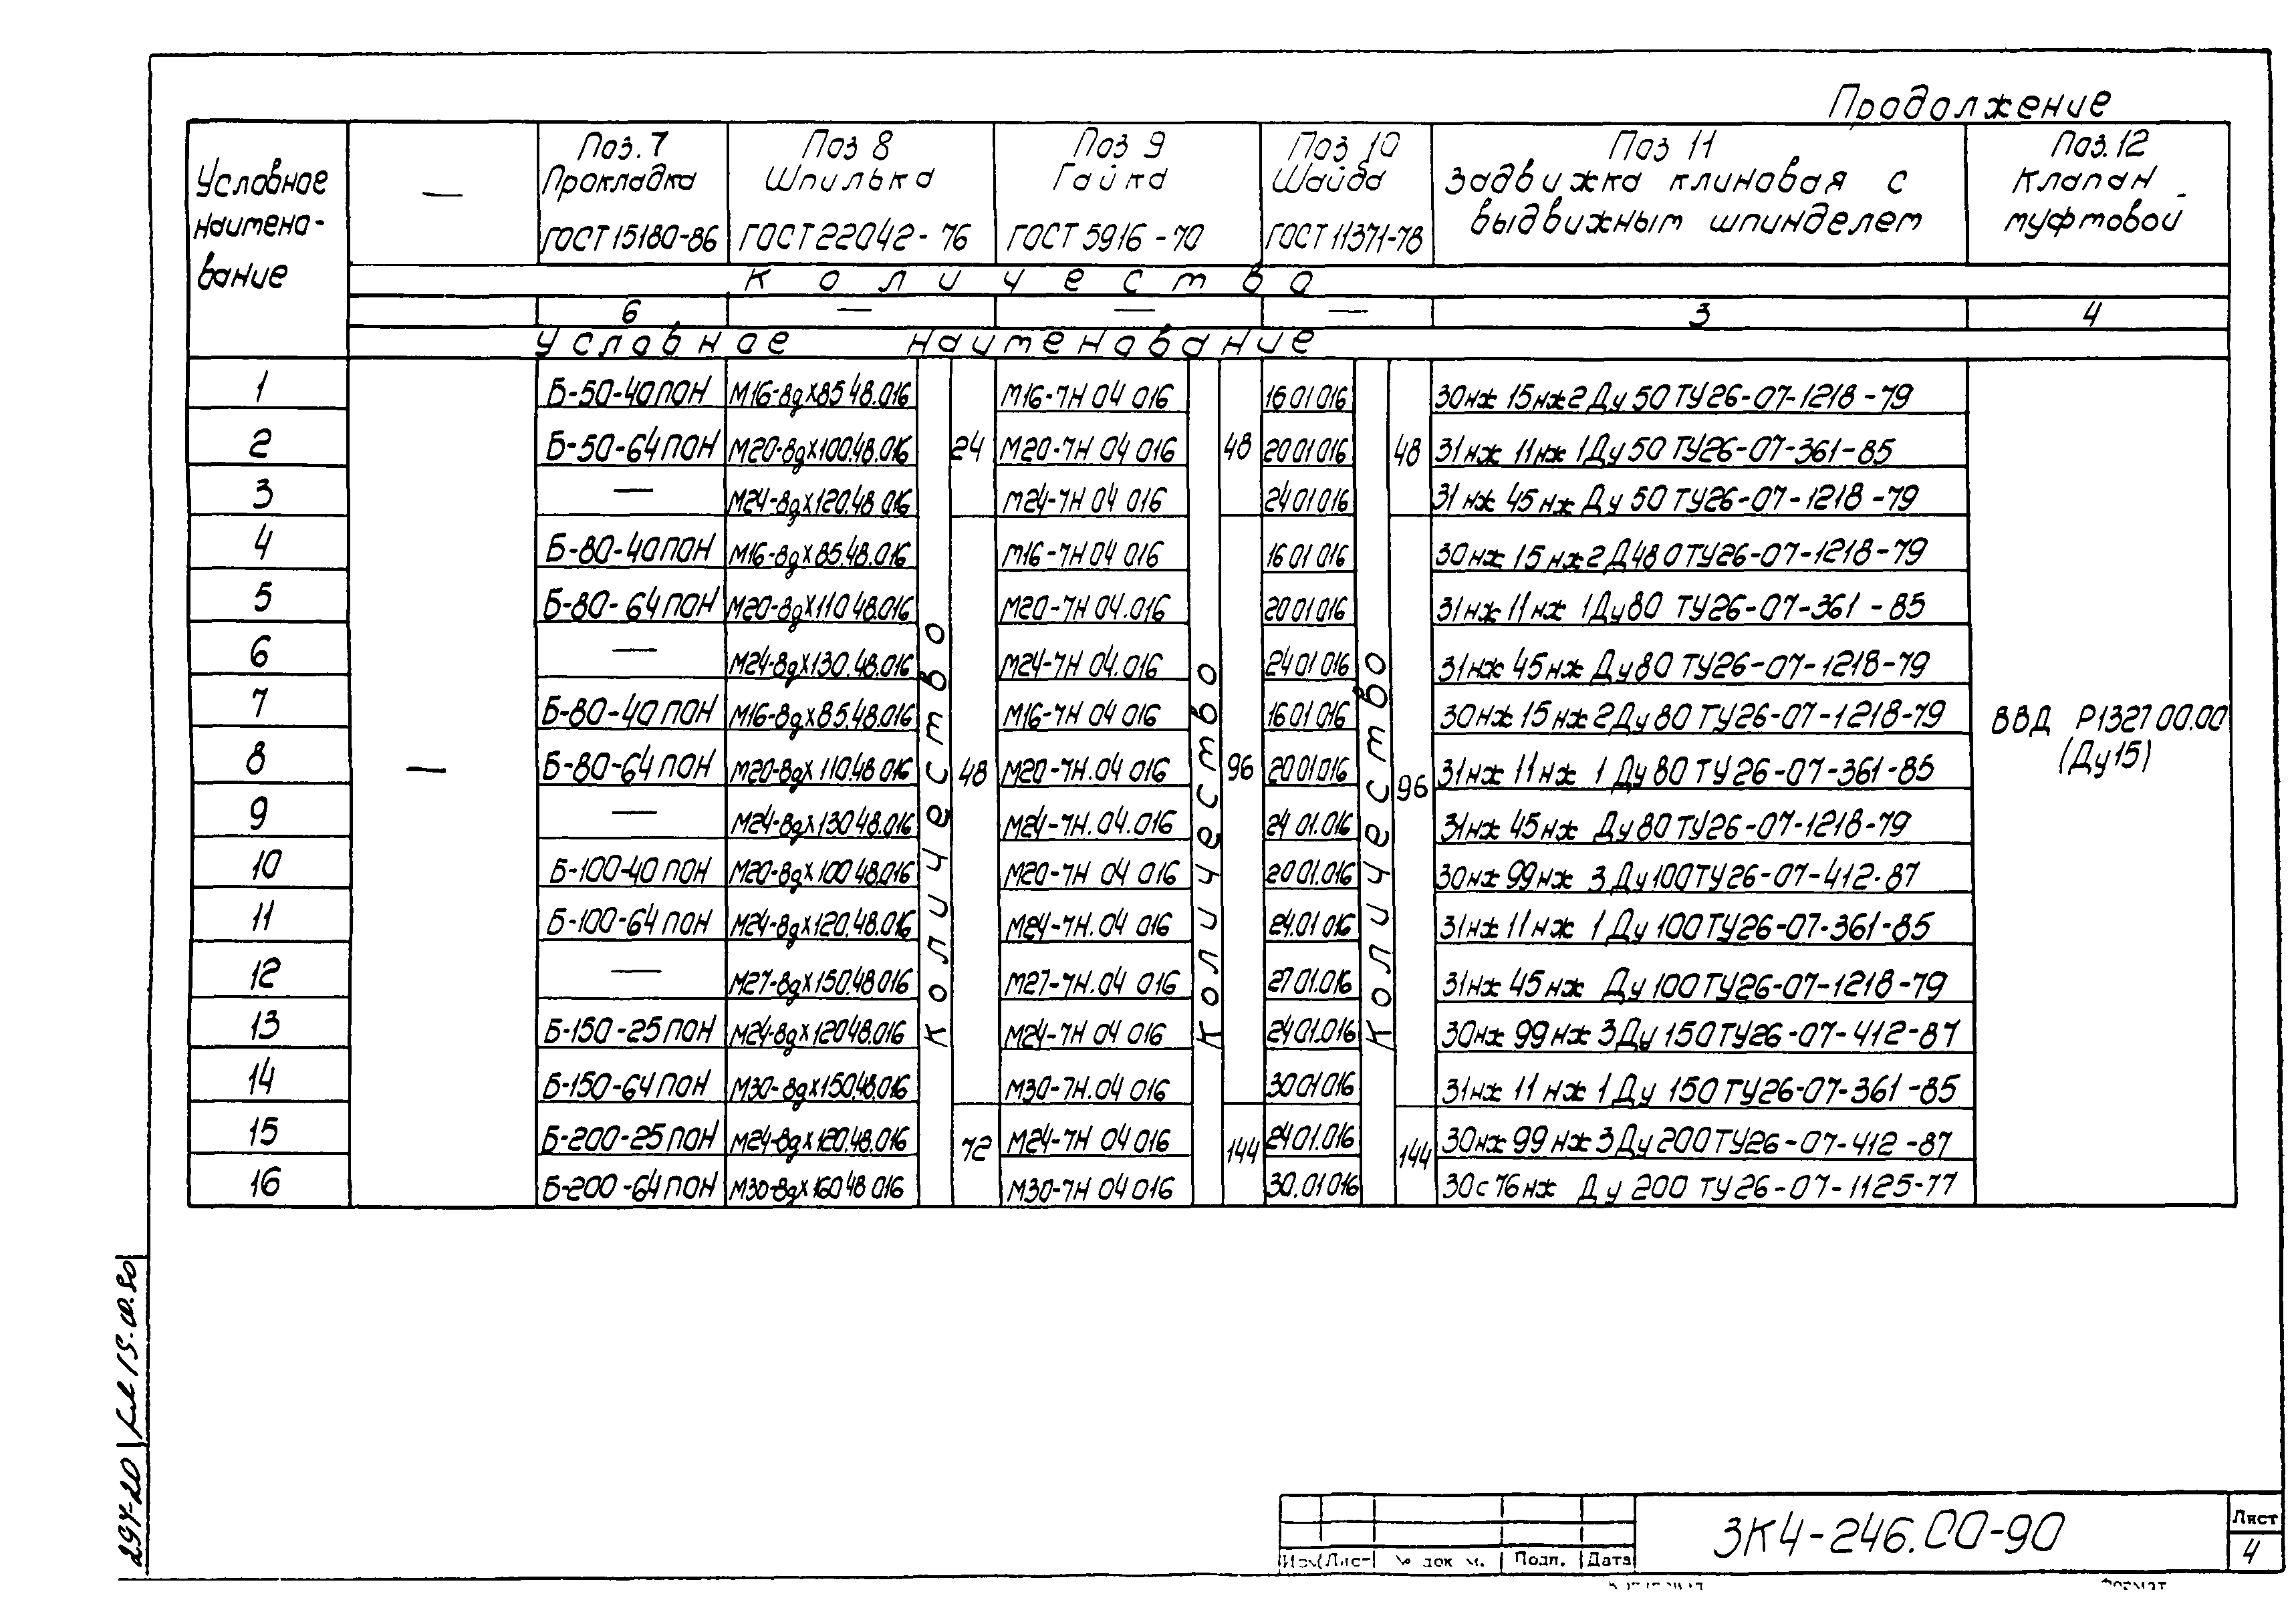 Продолжение
Условное наимено- вание — Поз.7 Прокладка ГОСТ 15180-86 Поз 8 Шпилька ГОСТ 22042-76 Поз 9 Гайка ГОСТ 5916-70 Поз 10 Шайба ГОСТ 11371-78 Поз 11 Задвижка клиновая с выдвижным шпинделем Поз.12 Клапан муфтовой
Количество
6 — — — 3 4
Условное наименование
1 Б-50-40ПОН М16-8gх85 48.016 М16-7Н 04 016 16 01 016 30нж 15нж2 Ду 50 ТУ26-07-1218-79
2 Б-50-64ПОН М20-8gх100.48.016 24 М20-7Н 04 016 48 20 01 016 48 31нж 11нж 1Ду 50 ТУ26-07-361-85
3 — М24-8gх120.48 016 М24-7Н 04 016 24 01 016 31нж 45нж Ду 50 ТУ26-07-1218-79
4 Б-80-40ПОН М16-8gх85.48.016 М16-7Н 04 016 16 01 016 30нж 15нж2 Ду80 ТУ26-07-1218-79
5 Б-80-64ПОН М20-8gх110 48.016 М20-7Н 04.016 20 01 016 31нж 11нж 1Ду80 ТУ26-07-361-85
6 — М24-8gх130.48.016 М24-7Н 04.016 24 01 016 31нж 45нж Ду80 ТУ26-07-1218-79
7 Б-80-40ПОН М16-8gх85.48.016 М16-7Н 04 016 16 01 016 30нж 15нж2 Ду 80 ТУ26-07-1218-79
8 — Б-80-64ПОН М20-8gх110.48.016 Количество 48 М20-7Н.04 016 Количество 96 20 01 016 Количество 96 31нж 11нж 1 Ду 80 ТУ26-07-361-85 ВВД Р1327 00.00 (Ду15)
9 — М24-8gх130 48.016 М24-7Н.04.016 24 01.016 31нж 45нж Ду 80 ТУ26-07-1218-79
10 Б-100-40 ПОН М20-8gх100 48.016 М20-7Н 04 016 20 01.016 30нж 99нж 3 Ду100 ТУ26-07-412-87
11 Б-100-64 ПОН М24-8gх120.48.016 М24-7Н.04 016 24.01 016 31нж 11нж 1 Ду 100 ТУ26-07-361-85
12 — М27-8gх150.48 016 М27-7Н.04 016 27 01.016 31нж 45нж Ду 100 ТУ26-07-1218-79
13 Б-150-25 ПОН М24-8gх120 48.016 М24-7Н 04 016 24 01.016 30нж 99нж 3Ду 150 ТУ26-07-412-87
14 Б-150-64 ПОН М30-8gх150.48.016 М30-7Н.04 016 30 01 016 31нж 11нж 1 Ду 150 ТУ26-07-361-85
15 Б-200-25 ПОН М24-8gх120.48.016 72 М24-7Н 04 016 144 24 01.016 144 30нж 99нж 3Ду 200 ТУ26-07-412-87
16 Б-200-64 ПОН М30-8gх160 48 016 М30-7Н 04 016 30.01 016 30с 76нж Ду 200 ТУ26-07-1125-77
294-20
ЗК4-246.СО-90
Лист
4
Изм Лист № докум. Подп. Дата
Копировал Формат